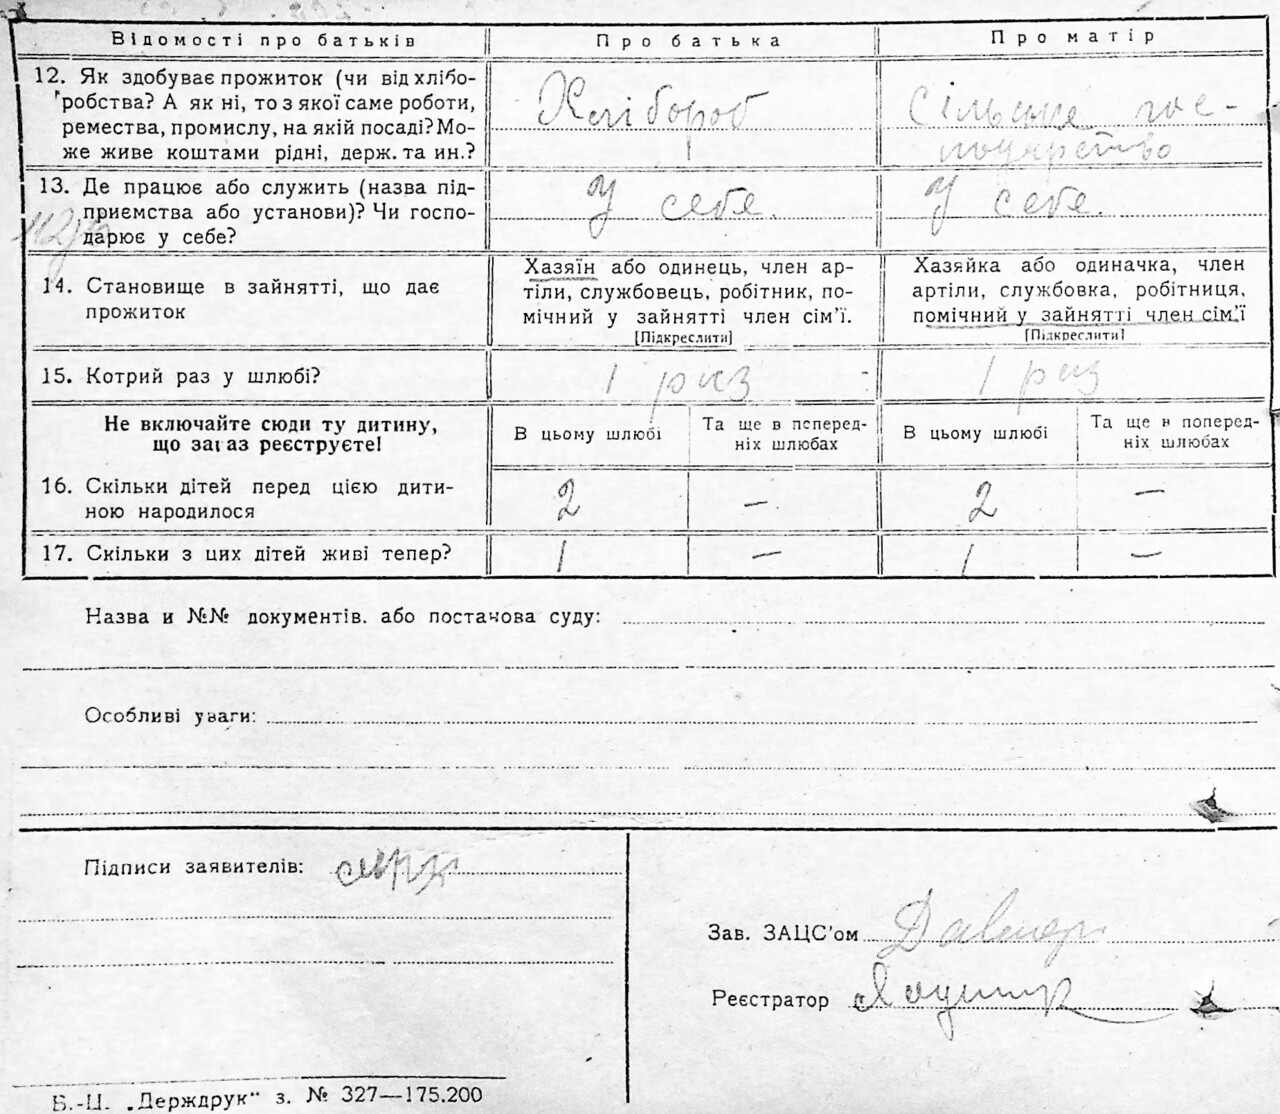 Відомості про батьків
Про батька
Про матір
12. Як здобуває прожиток (чи від хлібо-
робства? А як ні, то з якої саме роботи,
ремества, промислу, на якій посаді? Мо-
же живе коштами рідні, держ. та ин.?
Хлібороб
Сільське гос-
подарство
13. Де працює або служить (назва під-
приємства або установи)? Чи госпо-
дарює у себе?
У себе.
У себе.
14. Становище в зайнятті, що дає
прожиток
Хазяїн або одинець, член ар-
тіли, службовець, робітник, по-
мічний у зайнятті член сім'ї.
[Підкреслити]
Хазяйка або одиначка, член
артіли, службовка, робітниця,
помічний у зайнятті член сім'ї
[Підкреслити]
15. Котрий раз у шлюбі?
1 раз
1 раз
Не включайте сюди ту дитину,
що зараз реєструєте!
В цьому шлюбі
Та ще в поперед-
ніх шлюбах
В цьому шлюбі
Та ще в поперед-
ніх шлюбах
16. Скільки дітей перед цією дити-
ною народилося
2
—
2
—
17. Скільки з цих дітей живі тепер?
1
—
1
—
Назва и №№ документів. або постанова суду:
Особливі уваги:
Підписи заявителів:
Зав. ЗАЦС'ом
Реєстратор
Б.-Ц. „Держдрук" з. № 327—175.200